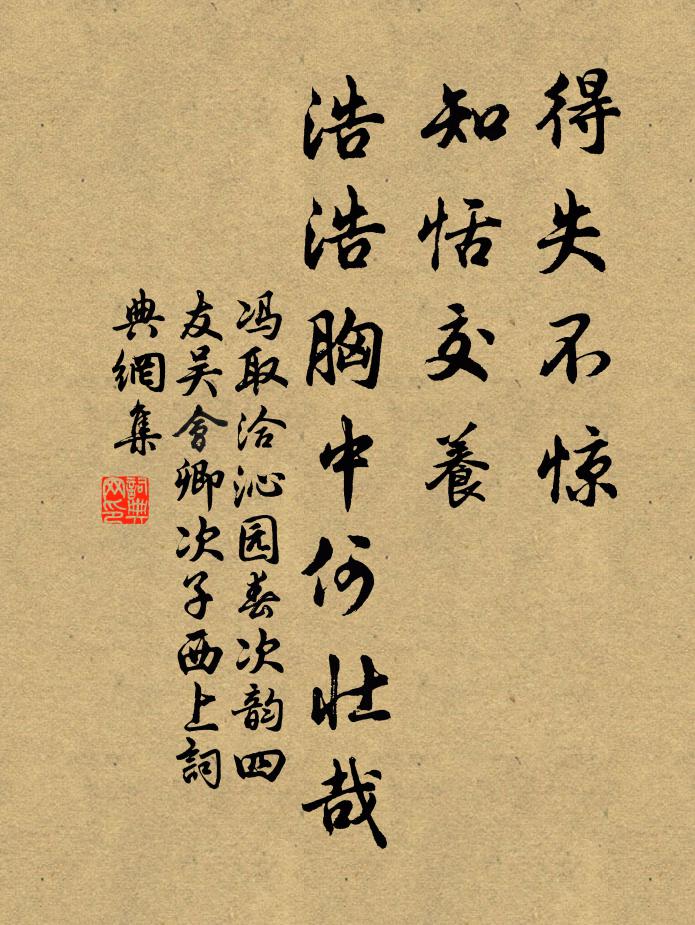 得失不惊
知恬交養
浩浩胸中何壮哉
冯取洽沁园春次韵四
友吴會卿次子西上詞
典網集
詞典網印